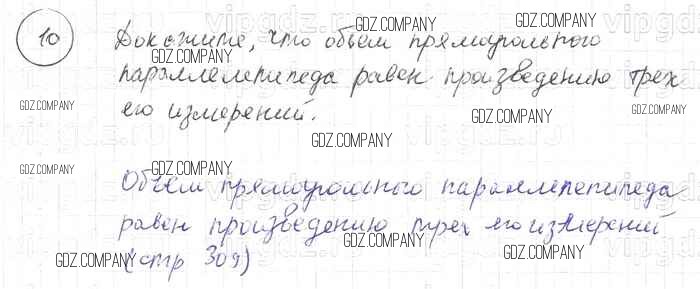 10
Докажите, что объем прямоугольного
параллелепипеда равен произведению трех
его измерений.
Объем прямоугольного параллелепипеда
равен произведению трех его измерений
(стр 309)
GDZ.COMPANY
GDZ.COMPANY
GDZ.COMPANY
GDZ.COMPANY
GDZ.COMPANY
GDZ.COMPANY
GDZ.COMPANY
GDZ.COMPANY
GDZ.COMPANY
GDZ.COMPANY
GDZ.COMPANY
GDZ.COMPANY
GDZ.COMPANY